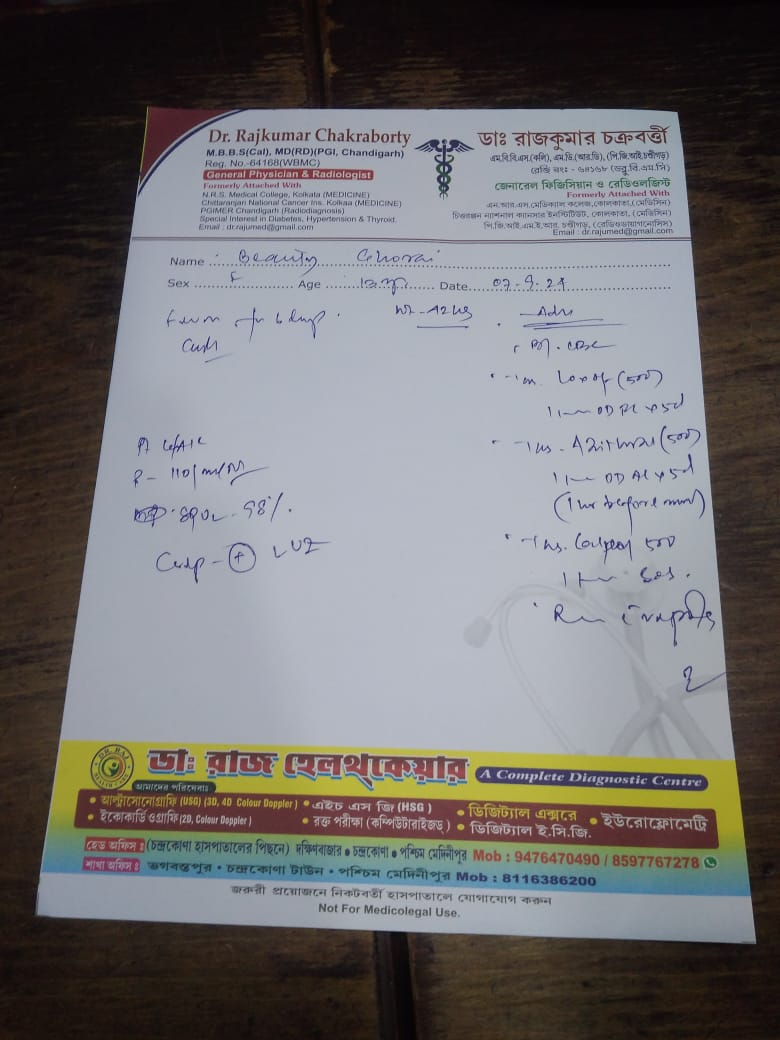 Dr. Rajkumar Chakraborty
M.B.B.S(Cal), MD(RD)(PGI, Chandigarh)
Reg. No.-64168(WBMC)
General Physician & Radiologist
Formerly Attached With
N.R.S. Medical College, Kolkata (MEDICINE)
Chittaranjan National Cancer Ins. Kolkaa (MEDICINE)
PGIMER Chandigarh (Radiodiagnosis)
Special Interest in Diabetes, Hypertension & Thyroid.
Email : dr.rajumed@gmail.com
ডাঃ রাজকুমার চক্রবর্ত্তী
এম.বি.বি.এস.(কলি), এম.ডি.(আর.ডি), (পি.জি.আই.চন্ডীগড়)
রেজি নং - ৬৪১৬৮ (ডব্লু.বি.এম.সি)
জেনারেল ফিজিসিয়ান ও রেডিওলজিস্ট
Formerly Attached With
এন.আর.এস.মেডিক্যাল কলেজ,কোলকাতা,(মেডিসিন)
চিত্তরঞ্জন ন্যাশনাল ক্যানসার ইনস্টিটিউট, কোলকাতা, (মেডিসিন)
পি.জি.আই.এম.ই.আর. চণ্ডীগড়, (রেডিওডায়াগনোসিস)
Email : dr.rajumed@gmail.com
Name : Beauty Ghorai
Sex F Age Date 07-9-24
for 6 days
Adv
CBC
(500)
1 OD PC x 5d
(500)
1 OD AC x 5d
(1 hr before meal)
500
1 SOS.
P- 110/min
SPO2 - 98%.
DR. RAJ
ডাঃ রাজ হেলথ্কেয়ার
A Complete Diagnostic Centre
আমাদের পরিষেবাঃ
• আল্ট্রাসোনোগ্রাফি (USG) (3D, 4D Colour Doppler) • এইচ এস জি (HSG) • ডিজিট্যাল এক্সরে • ইউরোফ্লোমেট্রি
• ইকোকার্ডিওগ্রাফী (2D, Colour Doppler) • রক্ত পরীক্ষা (কম্পিউটারাইজড্) • ডিজিট্যাল ই.সি.জি.
হেড অফিস : (চন্দ্রকোণা হাসপাতালের পিছনে) দক্ষিণবাজার • চন্দ্রকোণা • পশ্চিম মেদিনীপুর Mob : 9476470490 / 8597767278
শাখা অফিস : ভগবন্তপুর • চন্দ্রকোণা টাউন • পশ্চিম মেদিনীপুর Mob : 8116386200
জরুরী প্রয়োজনে নিকটবর্তী হাসপাতালে যোগাযোগ করুন
Not For Medicolegal Use.